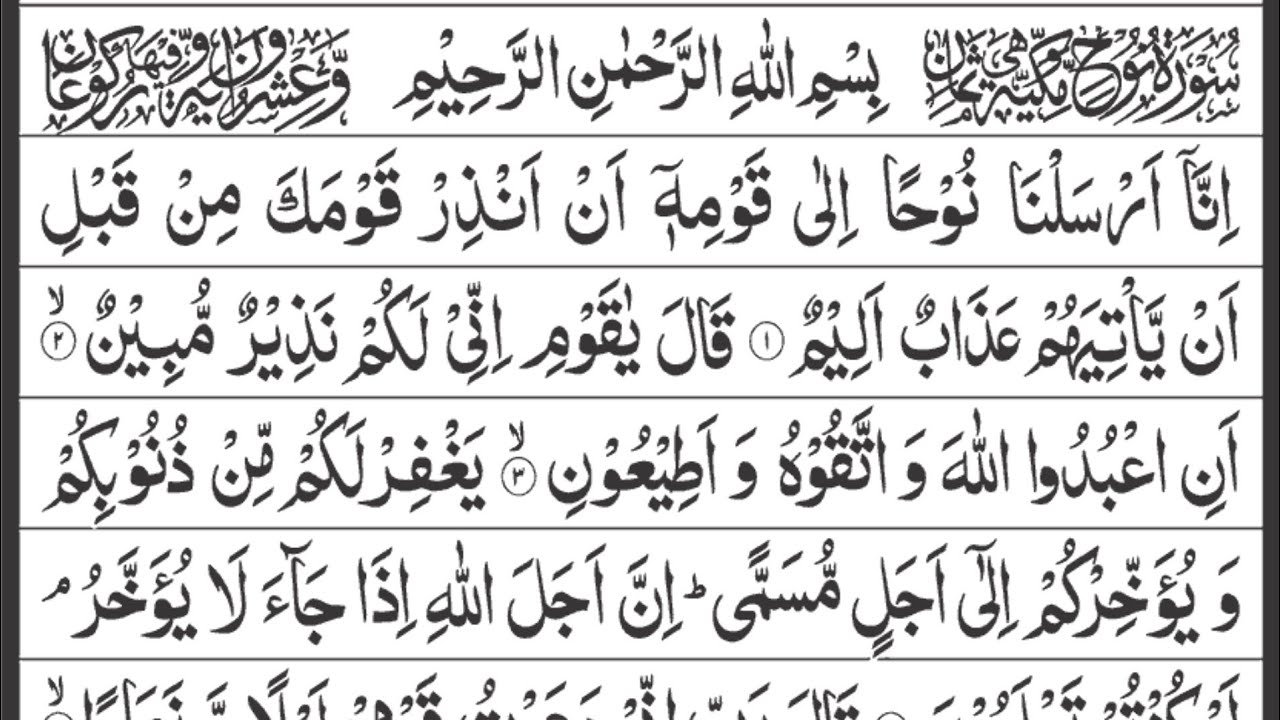 سُوْرَةُ نُوْحٍ مَّكِّيَّةٌ وَّهِيَ ثَمَانٍ بِسْمِ اللّٰهِ الرَّحْمٰنِ الرَّحِيْمِ وَّعِشْرُوْنَ اٰيَةً وَّفِيْهَا رُكُوْعَانِ
اِنَّاۤ اَرْسَلْنَا نُوْحًا اِلٰى قَوْمِهٖۤ اَنْ اَنْذِرْ قَوْمَكَ مِنْ قَبْلِ
اَنْ يَّاْتِيَهُمْ عَذَابٌ اَلِيْمٌ ۝۱ قَالَ يٰقَوْمِ اِنِّىْ لَكُمْ نَذِيْرٌ مُّبِيْنٌ ۙ۝۲
اَنِ اعْبُدُوا اللّٰهَ وَ اتَّقُوْهُ وَ اَطِيْعُوْنِ ۙ۝۳ يَغْفِرْ لَكُمْ مِّنْ ذُنُوْبِكُمْ
وَ يُؤَخِّرْكُمْ اِلٰۤى اَجَلٍ مُّسَمًّى ؕ اِنَّ اَجَلَ اللّٰهِ اِذَا جَآءَ لَا يُؤَخَّرُ ۘ